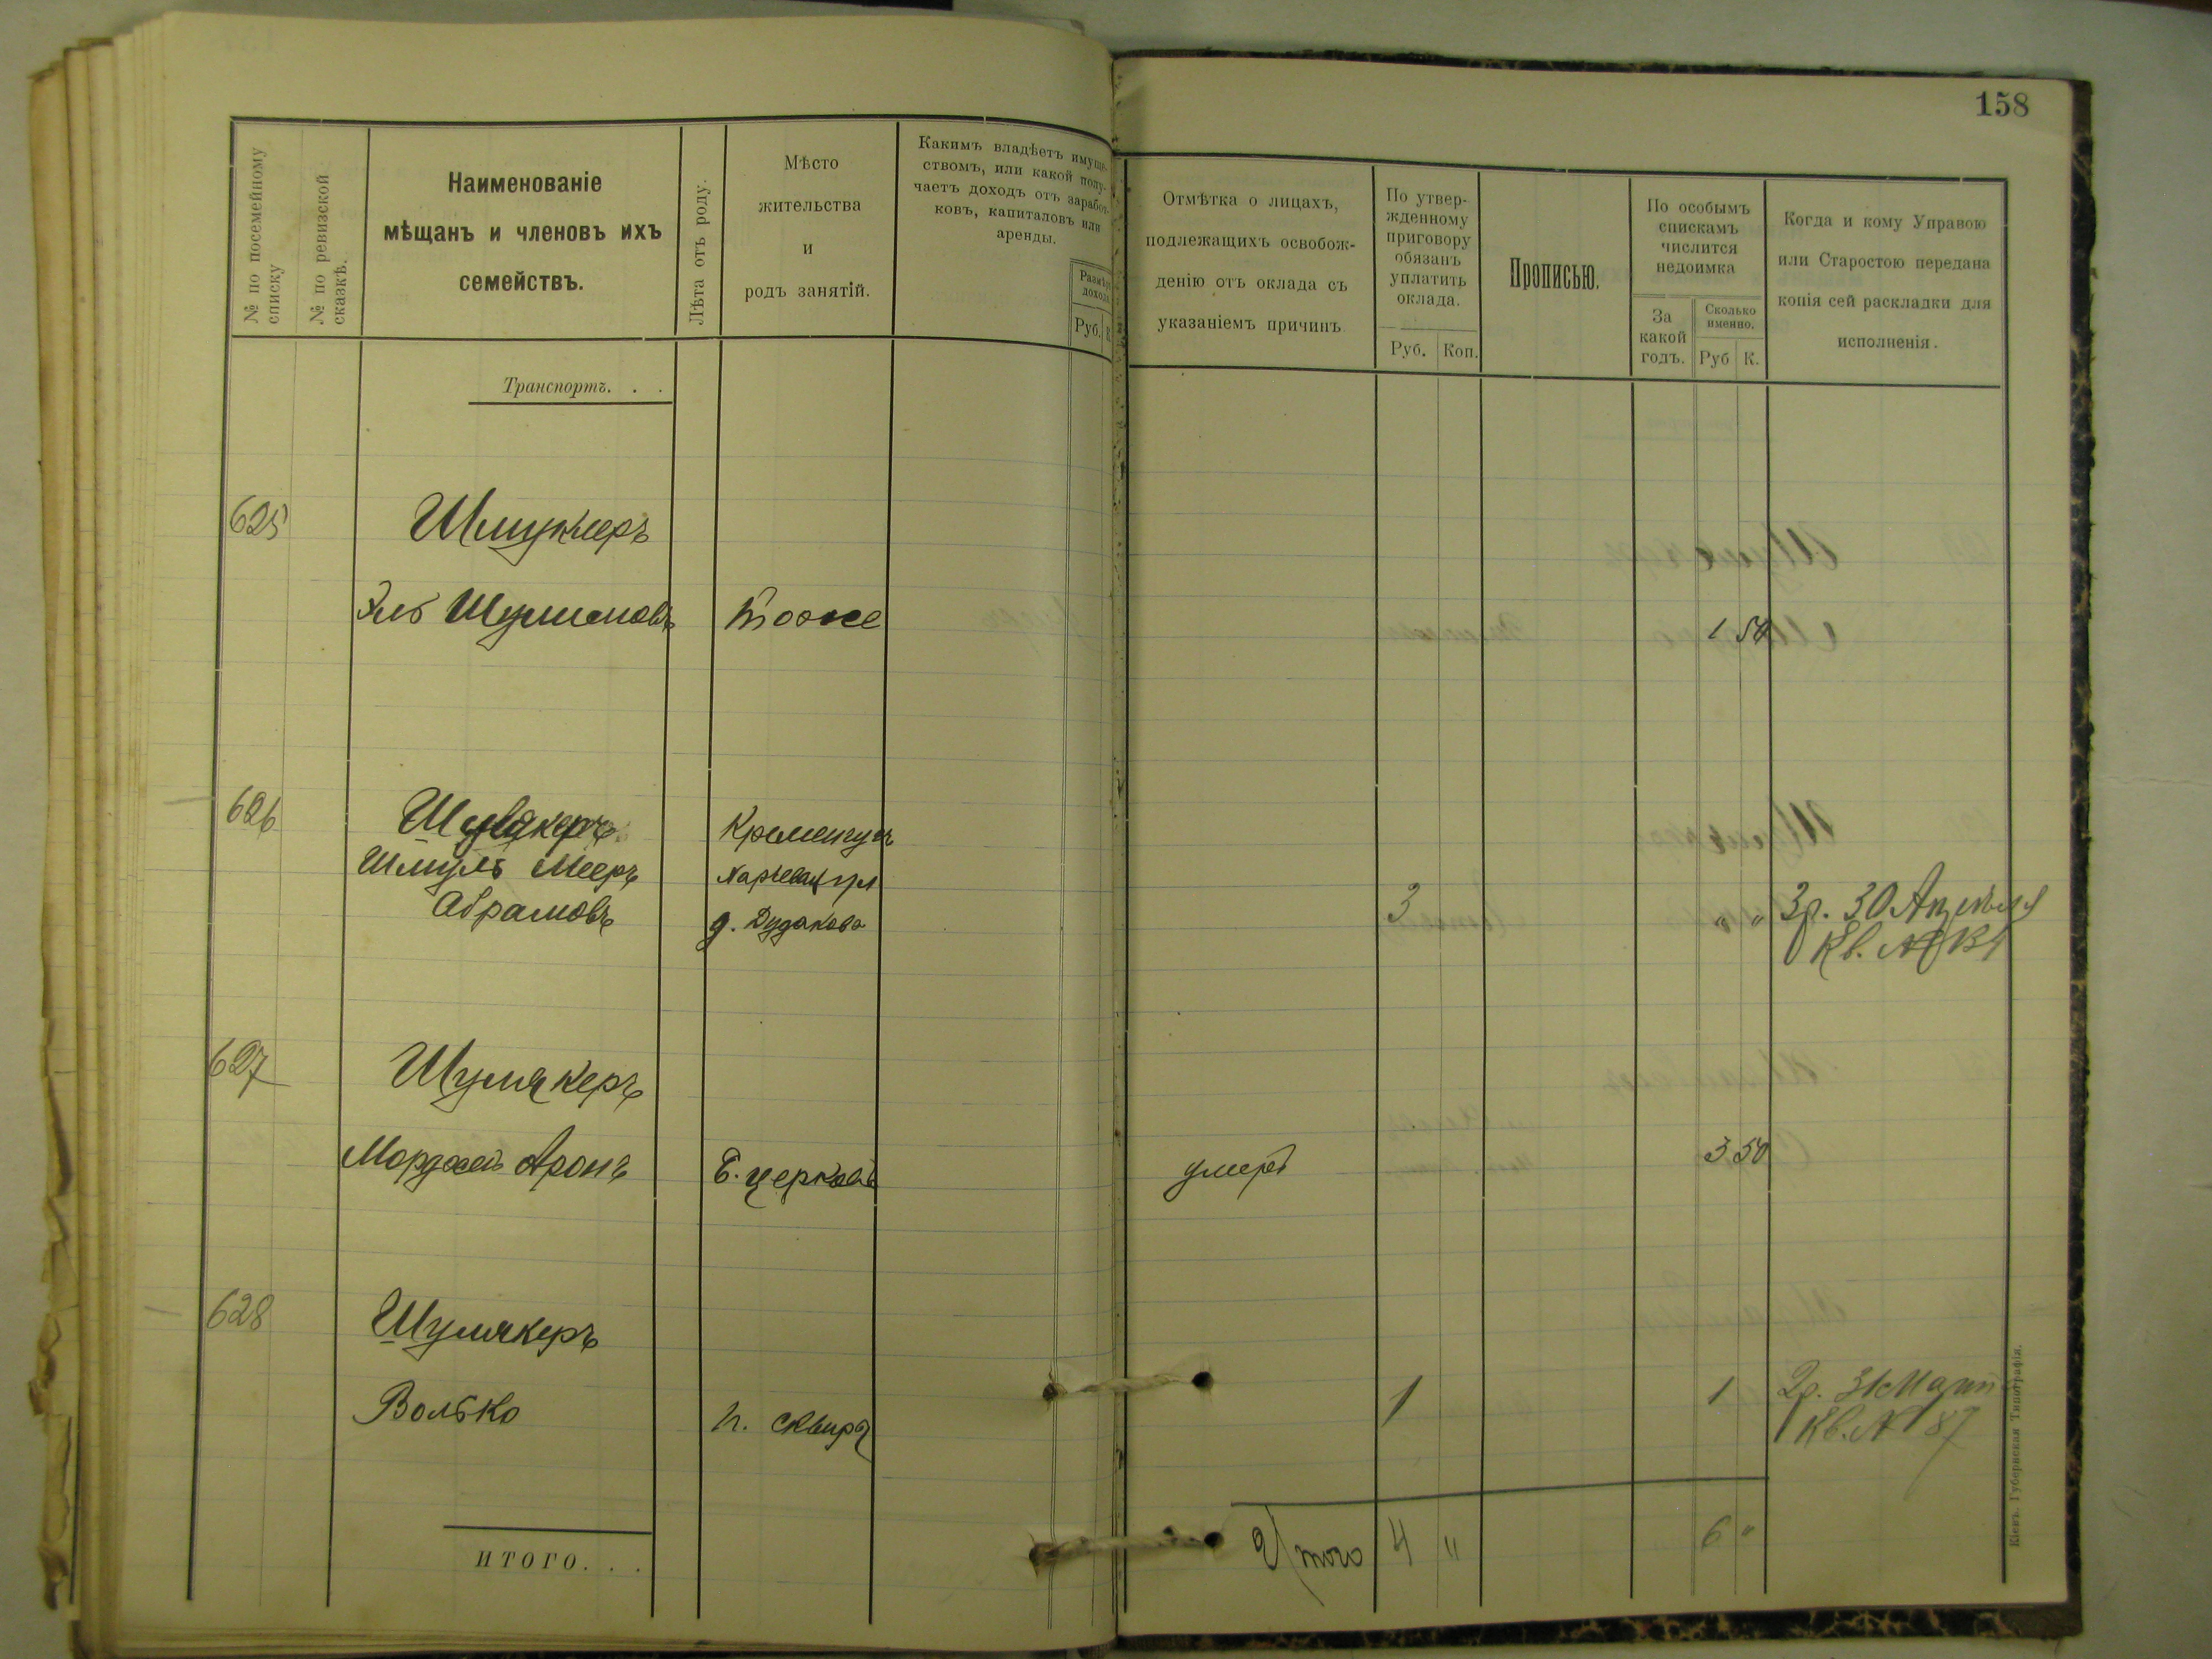 158
№ по посемейному
списку
№ по ревизской
сказкѣ.
Наименованіе
мѣщанъ и членовъ ихъ
семействъ.
Лѣта отъ роду.
Мѣсто
жительства
и
родъ занятій.
Какимъ владѣетъ имуще-
ствомъ, или какой полу-
чаетъ доходъ отъ заработ-
ковъ, капиталовъ или
аренды.
Размѣръ
дохода
Руб.
К.
Отмѣтка о лицахъ,
подлежащихъ освобож-
денію отъ оклада съ
указаніемъ причинъ
По утвер-
жденному
приговору
обязанъ
уплатить
оклада.
Руб. Коп.
Прописью.
По особымъ
спискамъ
числится
недоимка
За
какой
годъ.
Сколько
именно.
Руб К.
Когда и кому Управою
или Старостою передана
копія сей раскладки для
исполненія.
Транспортъ. . .
625
Эль тоже 1 50
626
Кременчугъ
Шмуль Мееръ
Абрамовъ
д. Дудакова
3 " " 3р. 30 Апрѣля
Кв. №
627 Шумякеръ
Мордхей Аронъ Б. церковь умеръ 3 50
628 Шумякеръ
Волько г. Сквира 1 1 2р. 31 Марта
Кв. № 87
ИТОГО. . .
Итого 4 " 6 "
Кіевъ. Губернская Типографія.